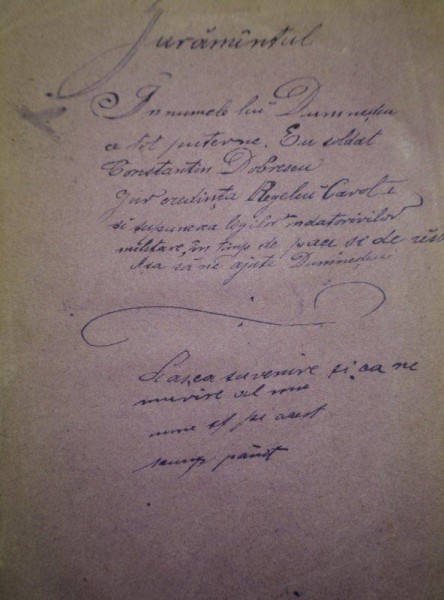 Jurămîntul
În numele lui Dumnezeu
a tot puterne. Eu soldat
Constantin Dobrescu
Jur credința Regelui Carol I
si supunerea legilor îndatorivilor
militare, în timp de pace si de résb
Asa să ne ajute Dumnezeu
suvenire si ca ne
murire al
nume pe acest
scump pămît